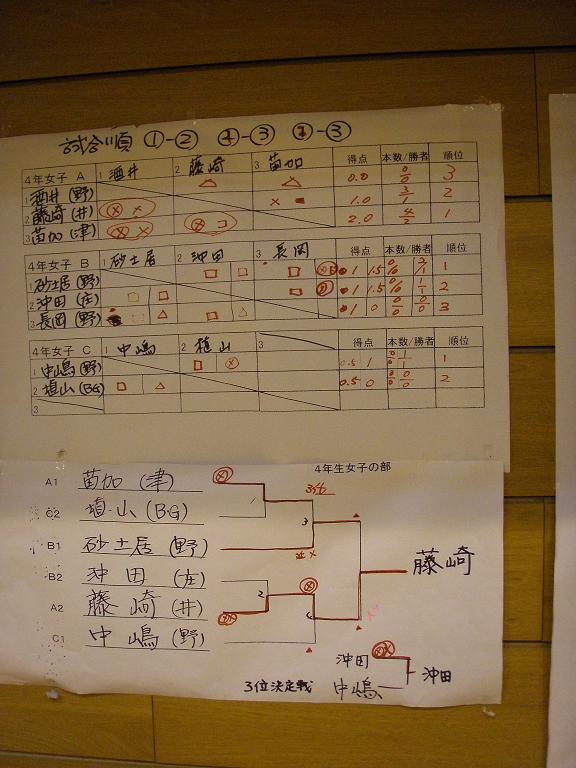 試合順 ①-② ①-③ ②-③
4年女子 A 1 酒井 2 藤崎 3 苗加 得点 本数/勝者 順位
1 酒井 (野) △ △ 0.0 0/0 3
2 藤崎 (井) ⊗ × × 1.0 3/1 2
3 苗加 (津) ⊗ × ⊗ コ 2.0 4/2 1
4年女子 B 1 砂土居 2 沖田 3 長岡 得点 本数/勝者 順位
1 砂土居 (野) □ □ □ 1 1.5 1
2 沖田 (庄) □ □ □ 1 1.5 2
3 長岡 (野) □ △ □ △ 1 0 3
4年女子 C 1 中嶋 2 植山 3 得点 本数/勝者 順位
1 中嶋 (野) □ ⊗ 0.5 1 1
2 植山 (BG) □ △ 0.5 0 2
3
4年生女子の部
A1 苗加 (津)
C2 植山 (BG)
B1 砂土居 (野)
B2 沖田 (庄)
A2 藤崎 (井)
C1 中嶋 (野)
1
2
3
4
藤崎
3位決定戦
沖田
中嶋
沖田